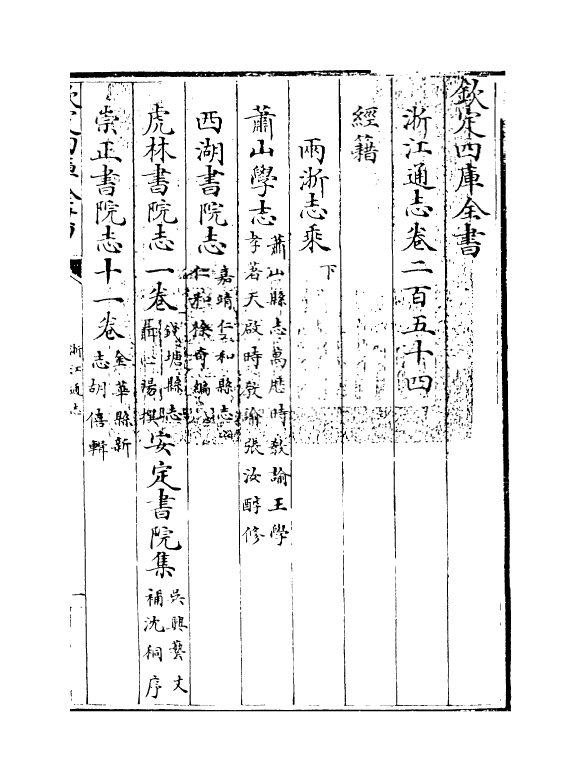 欽定四庫全書
浙江通志卷二百五十四
經籍
兩浙志乘下
蕭山學志蕭山縣志萬厯時教諭王學孝著天啟時教諭張汝醇修
西湖書院志嘉靖仁和縣志仁和徐奇編
虎林書院志一卷錢塘縣志聶心湯撰安定書院集吳興藝文補沈桐序
崇正書院志十一卷金華縣新志胡僖輯
浙江通志